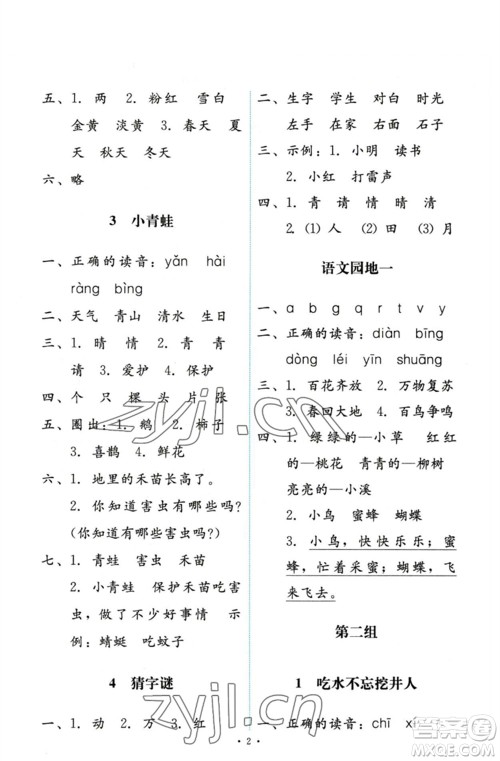 五、1. 两 2. 粉红 雪白
金黄 淡黄 3. 春天 夏
天 秋天 冬天
六、略
3 小青蛙
一、正确的读音：yǎn hài
ràng bìng
二、天气 青山 清水 生日
三、1. 晴 情 2. 青 青
请 3. 爱护 4. 保护
四、个 只 棵 头 片 张
五、圈出：1. 鹅 2. 柿子
3. 喜鹊 4. 鲜花
六、1. 地里的禾苗高高的了。
2. 你知道害虫有哪些吗？
(你知道有哪些害虫吗？)
七、1. 青蛙 害虫 禾苗
2. 小青蛙 保护禾苗吃害
虫，做了不少好事情 示
例：蜻蜓 吃蚊子
4 猜字谜
一、1. 动 2. 万 3. 红
二、生字 学生 对白 时光
左手 在家 右面 石子
三、示例：1. 小明 读书
2. 小红 打雷声
四、1. 青 请 情 晴 清
2. (1) 人 (2) 田 (3) 月
语文园地一
一、a b g q r t v y
二、正确的读音：diàn bīng
dòng léi yīn shuāng
三、1. 百花齐放 2. 万物复苏
3. 春回大地 4. 百鸟争鸣
四、1. 绿绿的—小草 红红
的—桃花 青青的—柳树
亮亮的—小溪
2. 小鸟 蜜蜂 蝴蝶
3. 小鸟，快快乐乐；蜜
蜂，忙着采蜜；蝴蝶，飞
来飞去。
第二组
1 吃水不忘挖井人
一、正确的读音：chī
· 2 ·
zyjl.cn
zyjl.cn